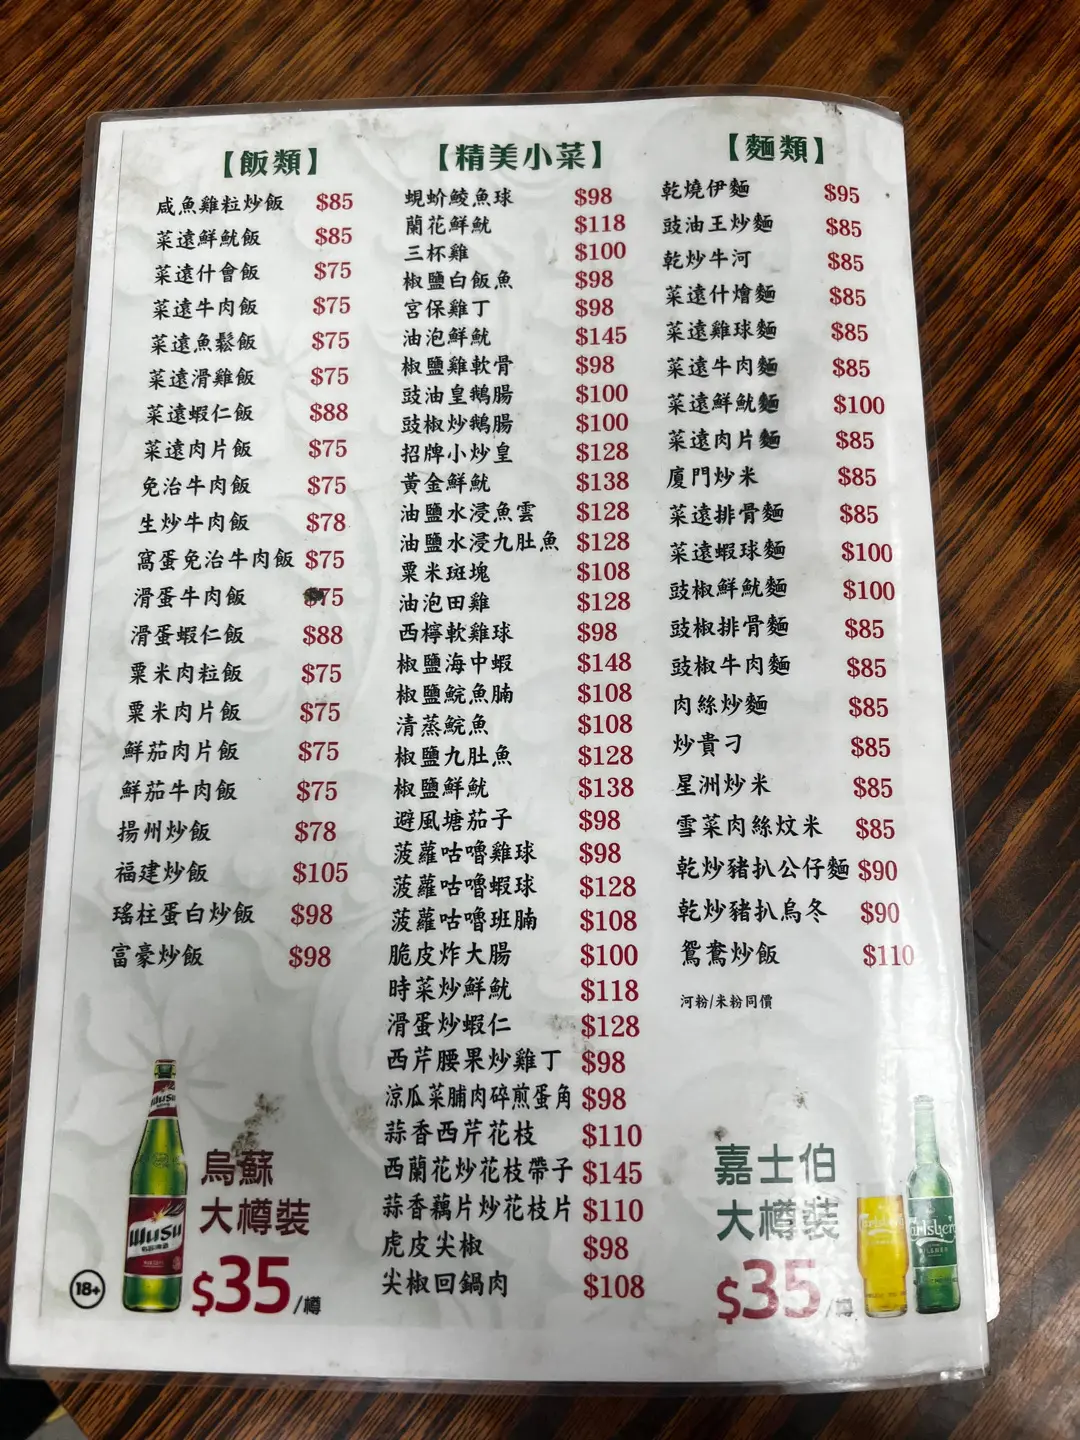 【飯類】
咸魚雞粒炒飯 $85
菜遠鮮魷飯 $85
菜遠什會飯 $75
菜遠牛肉飯 $75
菜遠魚鬆飯 $75
菜遠滑雞飯 $75
菜遠蝦仁飯 $88
菜遠肉片飯 $75
免治牛肉飯 $75
生炒牛肉飯 $78
窩蛋免治牛肉飯 $75
滑蛋牛肉飯 $75
滑蛋蝦仁飯 $88
粟米肉粒飯 $75
粟米肉片飯 $75
鮮茄肉片飯 $75
鮮茄牛肉飯 $75
揚州炒飯 $78
福建炒飯 $105
瑤柱蛋白炒飯 $98
富豪炒飯 $98
【精美小菜】
蜆蚧鯪魚球 $98
蘭花鮮魷 $118
三杯雞 $100
椒鹽白飯魚 $98
宮保雞丁 $98
油泡鮮魷 $145
椒鹽雞軟骨 $98
豉油皇鵝腸 $100
豉椒炒鵝腸 $100
招牌小炒皇 $128
黃金鮮魷 $138
油鹽水浸魚雲 $128
油鹽水浸九肚魚 $128
粟米斑塊 $108
油泡田雞 $128
西檸軟雞球 $98
椒鹽海中蝦 $148
椒鹽鯇魚腩 $108
清蒸鯇魚 $108
椒鹽九肚魚 $128
椒鹽鮮魷 $138
避風塘茄子 $98
菠蘿咕嚕雞球 $98
菠蘿咕嚕蝦球 $128
菠蘿咕嚕班腩 $108
脆皮炸大腸 $100
時菜炒鮮魷 $118
滑蛋炒蝦仁 $128
西芹腰果炒雞丁 $98
涼瓜菜脯肉碎煎蛋角 $98
蒜香西芹花枝 $110
西蘭花炒花枝帶子 $145
蒜香藕片炒花枝片 $110
虎皮尖椒 $98
尖椒回鍋肉 $108
【麵類】
乾燒伊麵 $95
豉油王炒麵 $85
乾炒牛河 $85
菜遠什燴麵 $85
菜遠雞球麵 $85
菜遠牛肉麵 $85
菜遠鮮魷麵 $100
菜遠肉片麵 $85
廈門炒米 $85
菜遠排骨麵 $85
菜遠蝦球麵 $100
豉椒鮮魷麵 $100
豉椒排骨麵 $85
豉椒牛肉麵 $85
肉絲炒麵 $85
炒貴刁 $85
星洲炒米 $85
雪菜肉絲炆米 $85
乾炒豬扒公仔麵 $90
乾炒豬扒烏冬 $90
鴛鴦炒飯 $110
河粉/米粉同價
18+
WuSu
烏蘇
大樽裝
$35/樽
嘉士伯
大樽裝
$35/樽
Carlsberg
Carlsberg
PILSNER